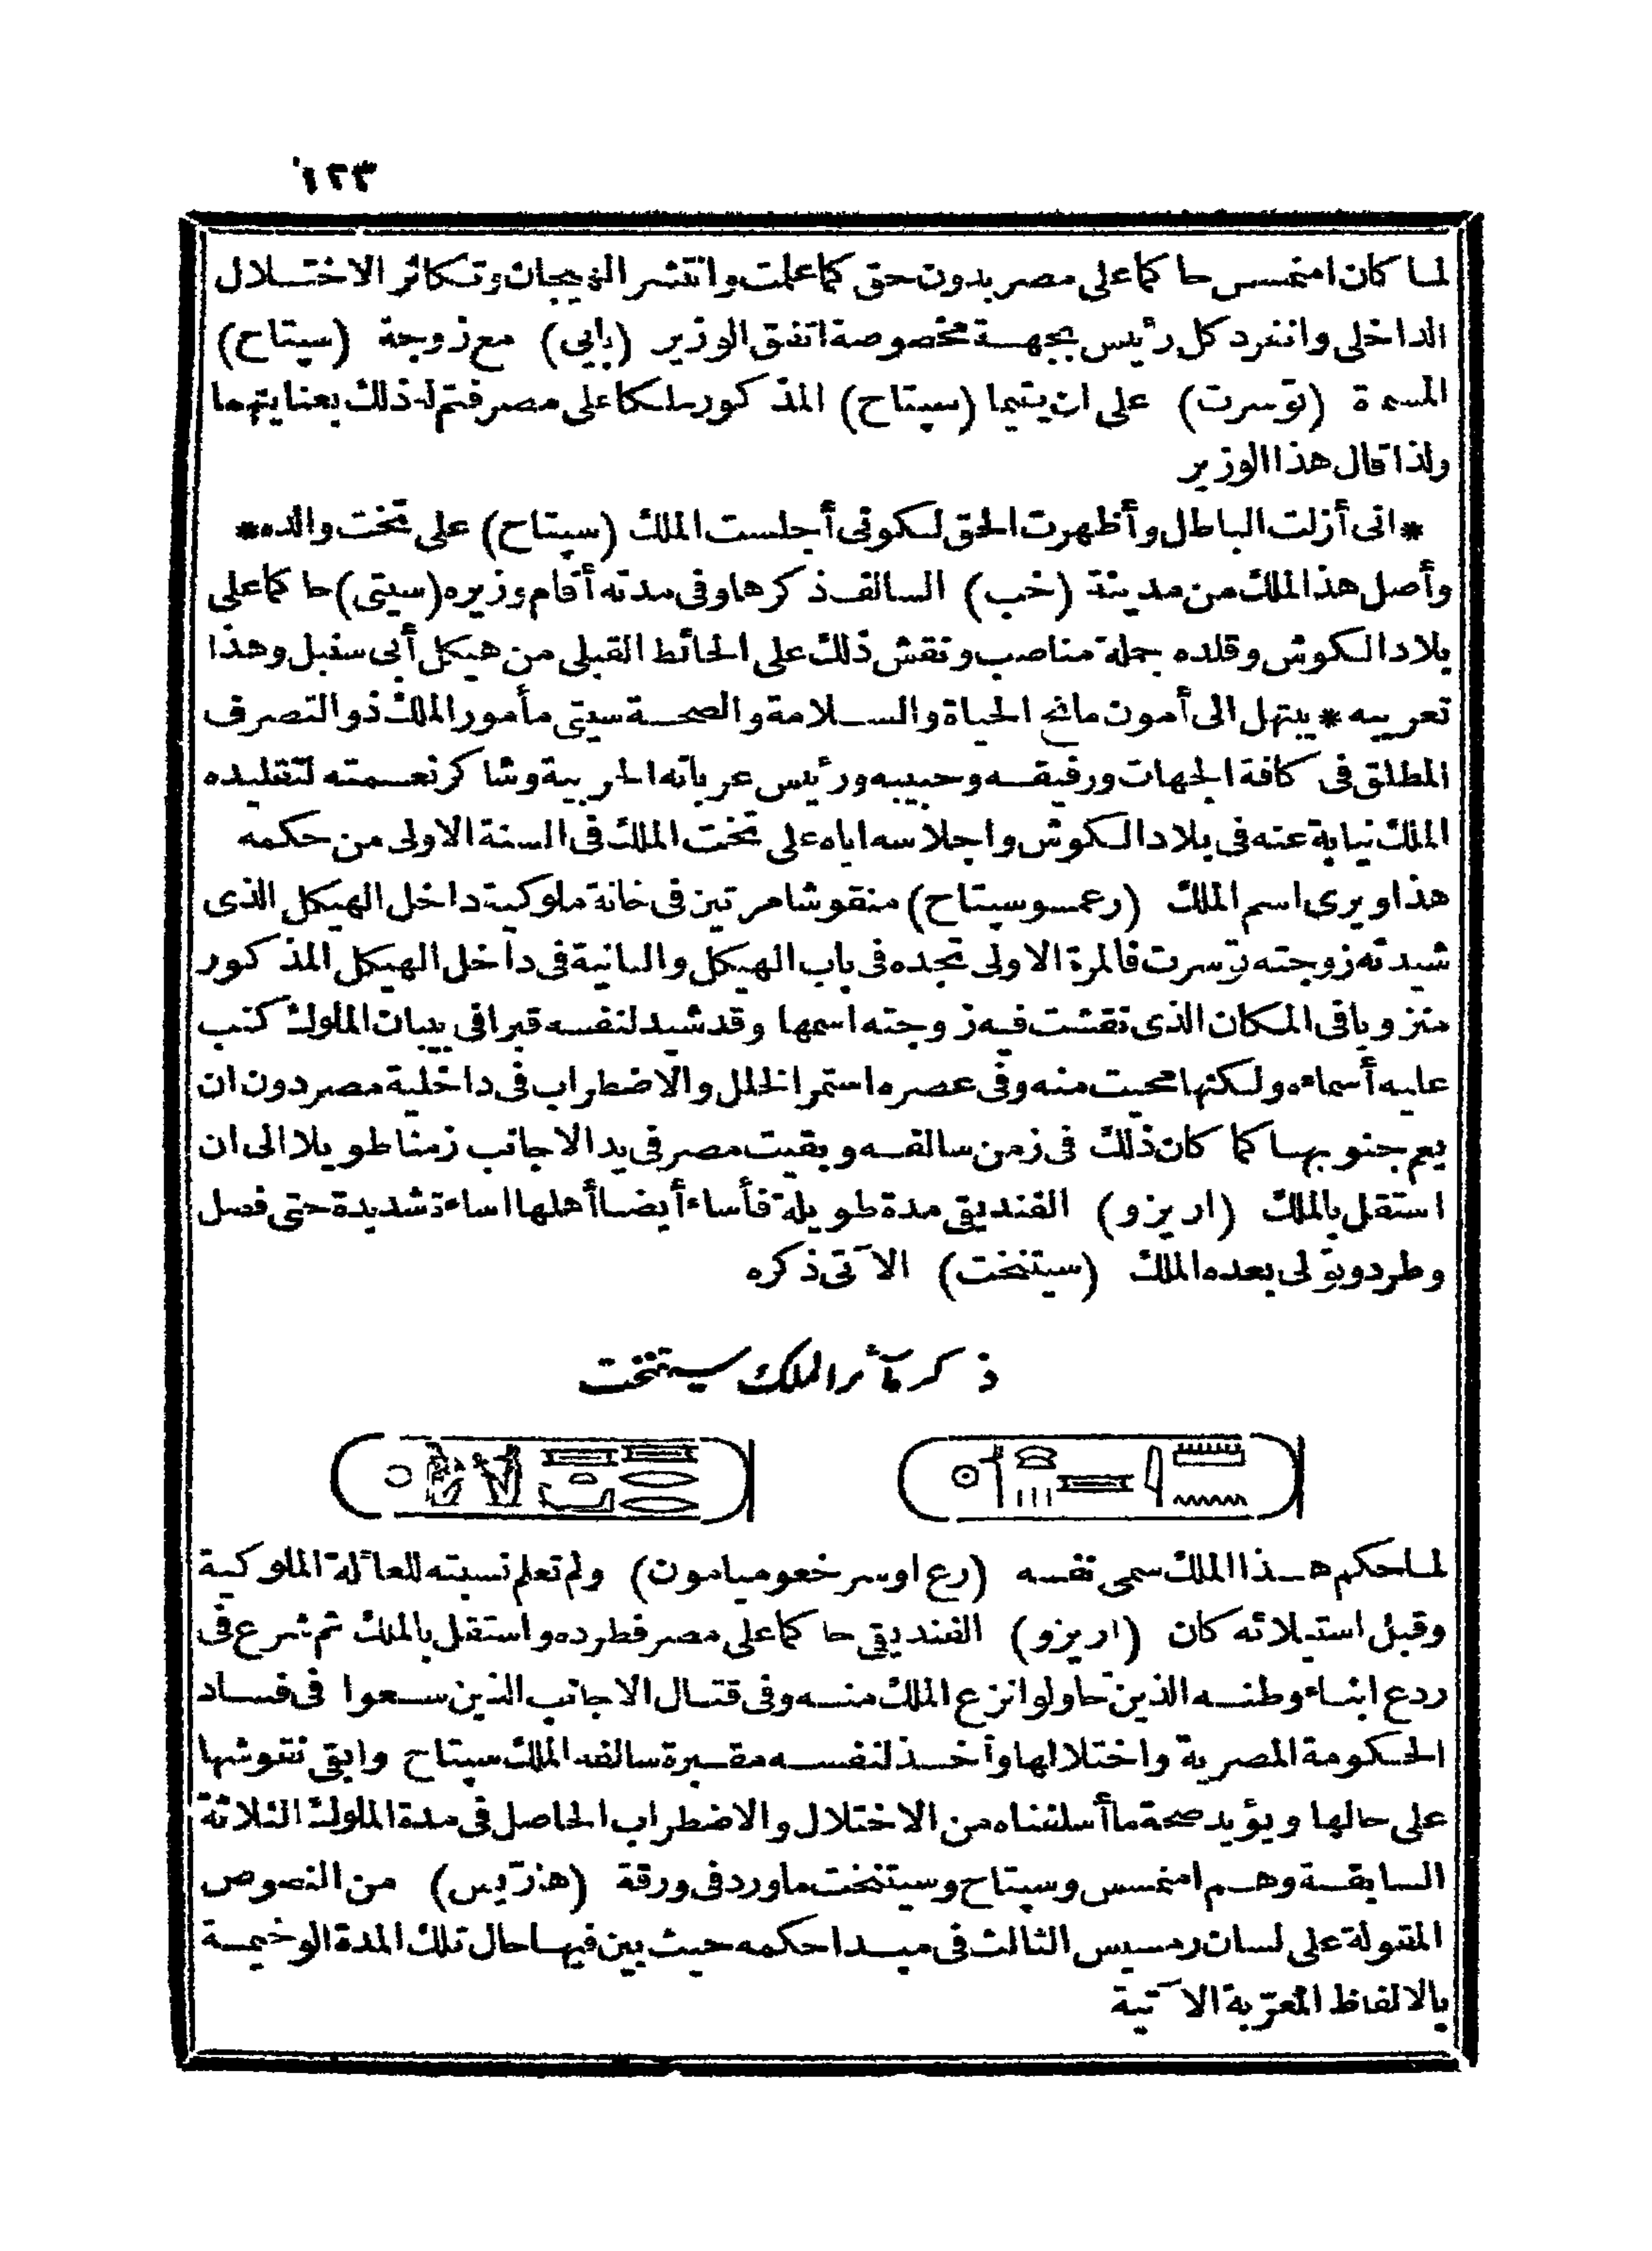 ١٢٣
لما كان امنمسس حاكما على مصر بدون حق كما علمت وانتشر الهيجان وتكاثر الاختلال
الداخلى وانفرد كل رئيس بجهة مخصوصة اتفق الوزير (بابي) مع زوجة (سپتاح)
المسماة (توسرت) على ان يقيما (سپتاح) المذكور ملكا على مصر فتم له ذلك بعنايتهما
ولذا قال هذا الوزير
* انى أزلت الباطل وأظهرت الحق لكونى أجلست الملك (سپتاح) على تخت والده *
وأصل هذا الملك من مدينة (خب) السالف ذكرها وفى مدته أقام وزيره (سيتى) حاكما على
بلاد الكوش وقلده جملة مناصب ونقش ذلك على الحائط القبلى من هيكل أبى سنبل وهذا
تعريبه * يبتهل الى أمون مانح الحياة والسلامة والصحة سيتى مأمور الملك ذو التصرف
المطلق فى كافة الجهات ورفيقه وحبيبه ورئيس عرباته الحربية وشاكر نعمته لتقليده
الملك نيابة عنه فى بلاد الكوش واجلاسه اياه على تخت الملك فى السنة الاولى من حكمه
هذا ويرى اسم الملك (رعمسو سپتاح) منقوشا مرتين فى خانة ملوكية داخل الهيكل الذى
شيدته زوجته توسرت فالمرة الاولى تجده فى باب الهيكل والثانية فى داخل الهيكل المذكور
منزويا فى المكان الذى نقشت فيه زوجته اسمها وقد شيد لنفسه قبرا فى بيبان الملوك كتب
عليه أسماءه ولكنها محيت منه وفى عصره استمر الخلل والاضطراب فى داخلية مصر دون ان
يعم جنوبها كما كان ذلك فى زمن سالفه وبقيت مصر فى يد الاجانب زمنا طويلا الى ان
استقل بالملك (اريزو) الفنديقى مدة طويلة فأساء أيضا أهلها اساءة شديدة حتى فصل
وطرد وتولى بعده الملك (سيتنخت) الآتى ذكره
ذكر مآثر الملك سيتنخت
لما حكم هذا الملك سمى نفسه (رع اوسر خعو ميامون) ولم تعلم نسبته للعائلة الملوكية
وقبل استيلائه كان (اريزو) الفنديقى حاكما على مصر فطرده واستقل بالملك ثم شرع فى
ردع ابناء وطنه الذين حاولوا نزع الملك منه وفى قتال الاجانب الذين سعوا فى فساد
الحكومة المصرية واختلالها وأخذ لنفسه مقبرة سالفه الملك سپتاح وابقى نقوشها
على حالها ويؤيد صحة ما أسلفناه من الاختلال والاضطراب الحاصل فى مدة الملوك الثلاثة
السابقة وهم امنمسس وسپتاح وسيتنخت ما ورد فى ورقة (هزريس) من النصوص
المقولة على لسان رمسيس الثالث فى مبدا حكمه حيث بين فيها حال تلك المدة الوخيمة
بالالفاظ المعرّبة الآتية